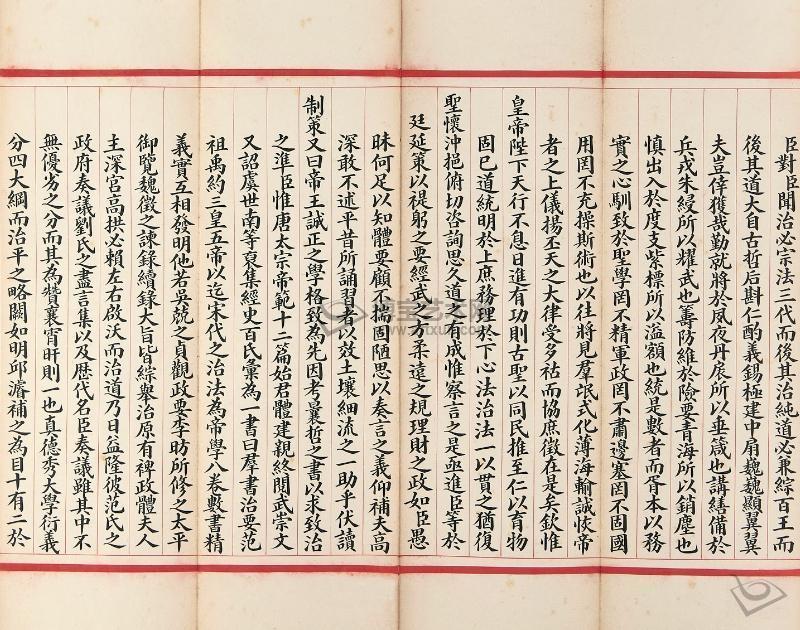 臣對臣聞治必宗法三代而後其治純道必兼綜百王而
後其道大自古哲后斟仁酌義錫極建中扇巍巍顯翼翼
夫豈倖獲哉勤就將於夙夜丹扆所以垂箴也講繕備於
兵戎朱綬所以耀武也籌防維於險要青海所以銷塵也
慎出入於度支紫標所以溢額也統是數者而胥本以務
實之心馴致於聖學罔不精軍政罔不肅邊塞罔不固國
用罔不充操斯術也以往將見羣氓式化薄海輸誠恢帝
者之上儀揚丕天之大律受多祜而協庶徵在是矣欽惟
皇帝陛下天行不息日進有功則古聖以同民推至仁以育物
固已道統明於上庶務理於下心法治法一以貫之猶復
聖懷沖挹俯切咨詢思久道之有成惟察言之是亟進臣等於
廷延策以禔躬之要經武之方柔遠之規理財之政如臣愚
昧何足以知體要顧不揣固陋思以奏言之義仰補夫高
深敢不述平昔所誦習者以效土壤細流之一助乎伏讀
制策又曰帝王誠正之學格致為先因考曩哲之書以求致治
之準臣惟唐太宗帝範十二篇始君體建親終閱武崇文
又詔虞世南等裒集經史百氏彙為一書曰羣書治要范
祖禹約三皇五帝以迄宋代之治法為帝學八卷數書精
義實互相發明他若吳兢之貞觀政要李昉所修之太平
御覽魏徵之諫錄續錄大旨皆綜舉治原有裨政體夫人
主深宮高拱必賴左右啟沃而治道乃日益隆彼范氏之
政府奏議劉氏之盡言集以及歷代名臣奏議雖其中不
無優劣之分而其為贊襄宵旰則一也真德秀大學衍義
分四大綱而治平之略闕如明邱濬補之為目十有二於